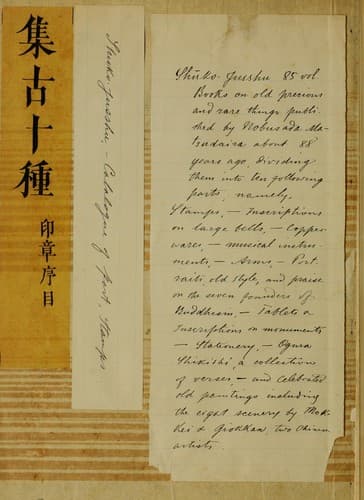 集古十種
印章序目
Shiuko-Jusshu, - Catalogue of part, Stamps
Shiuko-Jusshu 85 vol.
Books on old precious
and rare things publi-
shed by Nobusada Ma-
tsudaira about 88
years ago, dividing
them into ten following
parts, namely,
Stamps, – Inscriptions
on large bells, – Copper
wares, – musical instru-
ments, – Arms, – Port
raits, old style, and praise
on the seven founders of
Buddhism, – Tablets &
Inscriptions on monuments
– Stationery, – Ogura
Shikishi, a collections
of verses, – and Celebrated
old paintings including
the eight scenery by Mok-
kei & Giokkan, two Chinese
artists.